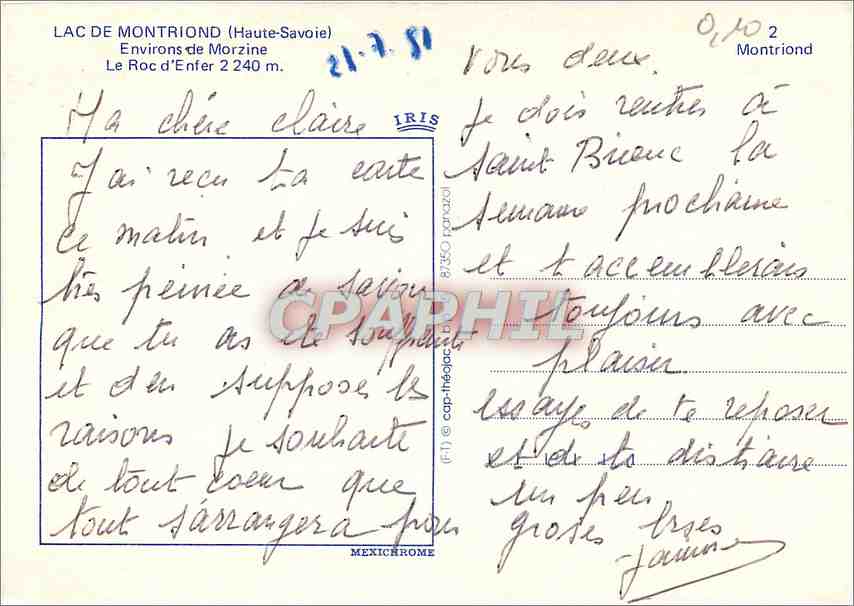 LAC DE MONTRIOND (Haute-Savoie)
Environs de Morzine
Le Roc d'Enfer 2 240 m.
21.7.81
0,10
2
Montriond
IRIS
Ma chère Claire
J'ai reçu ta carte
ce matin et je suis
très peinée de savoir
que tu as été souffrante
et d'en supposer les
raisons je souhaite
de tout coeur que
tout s'arrangera pour
MEXICHROME
(F-T) © cap-théojac 87350 panazol
CPAPHIL
vous deux.
Je dois rentrer à
Saint Brieuc la
semaine prochaine
et t'accemblerais
toujours avec
plaisir
essayes de te reposer
et de te distraire
un peu
groses bises